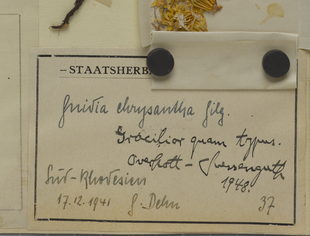 – STAATSHERB
Gnidia chrysantha Gilg.
Gracilior quam typus.
Overkott - Suessenguth
1948.
Süd-Rhodesien
17.12.1941 G. Dehn 37